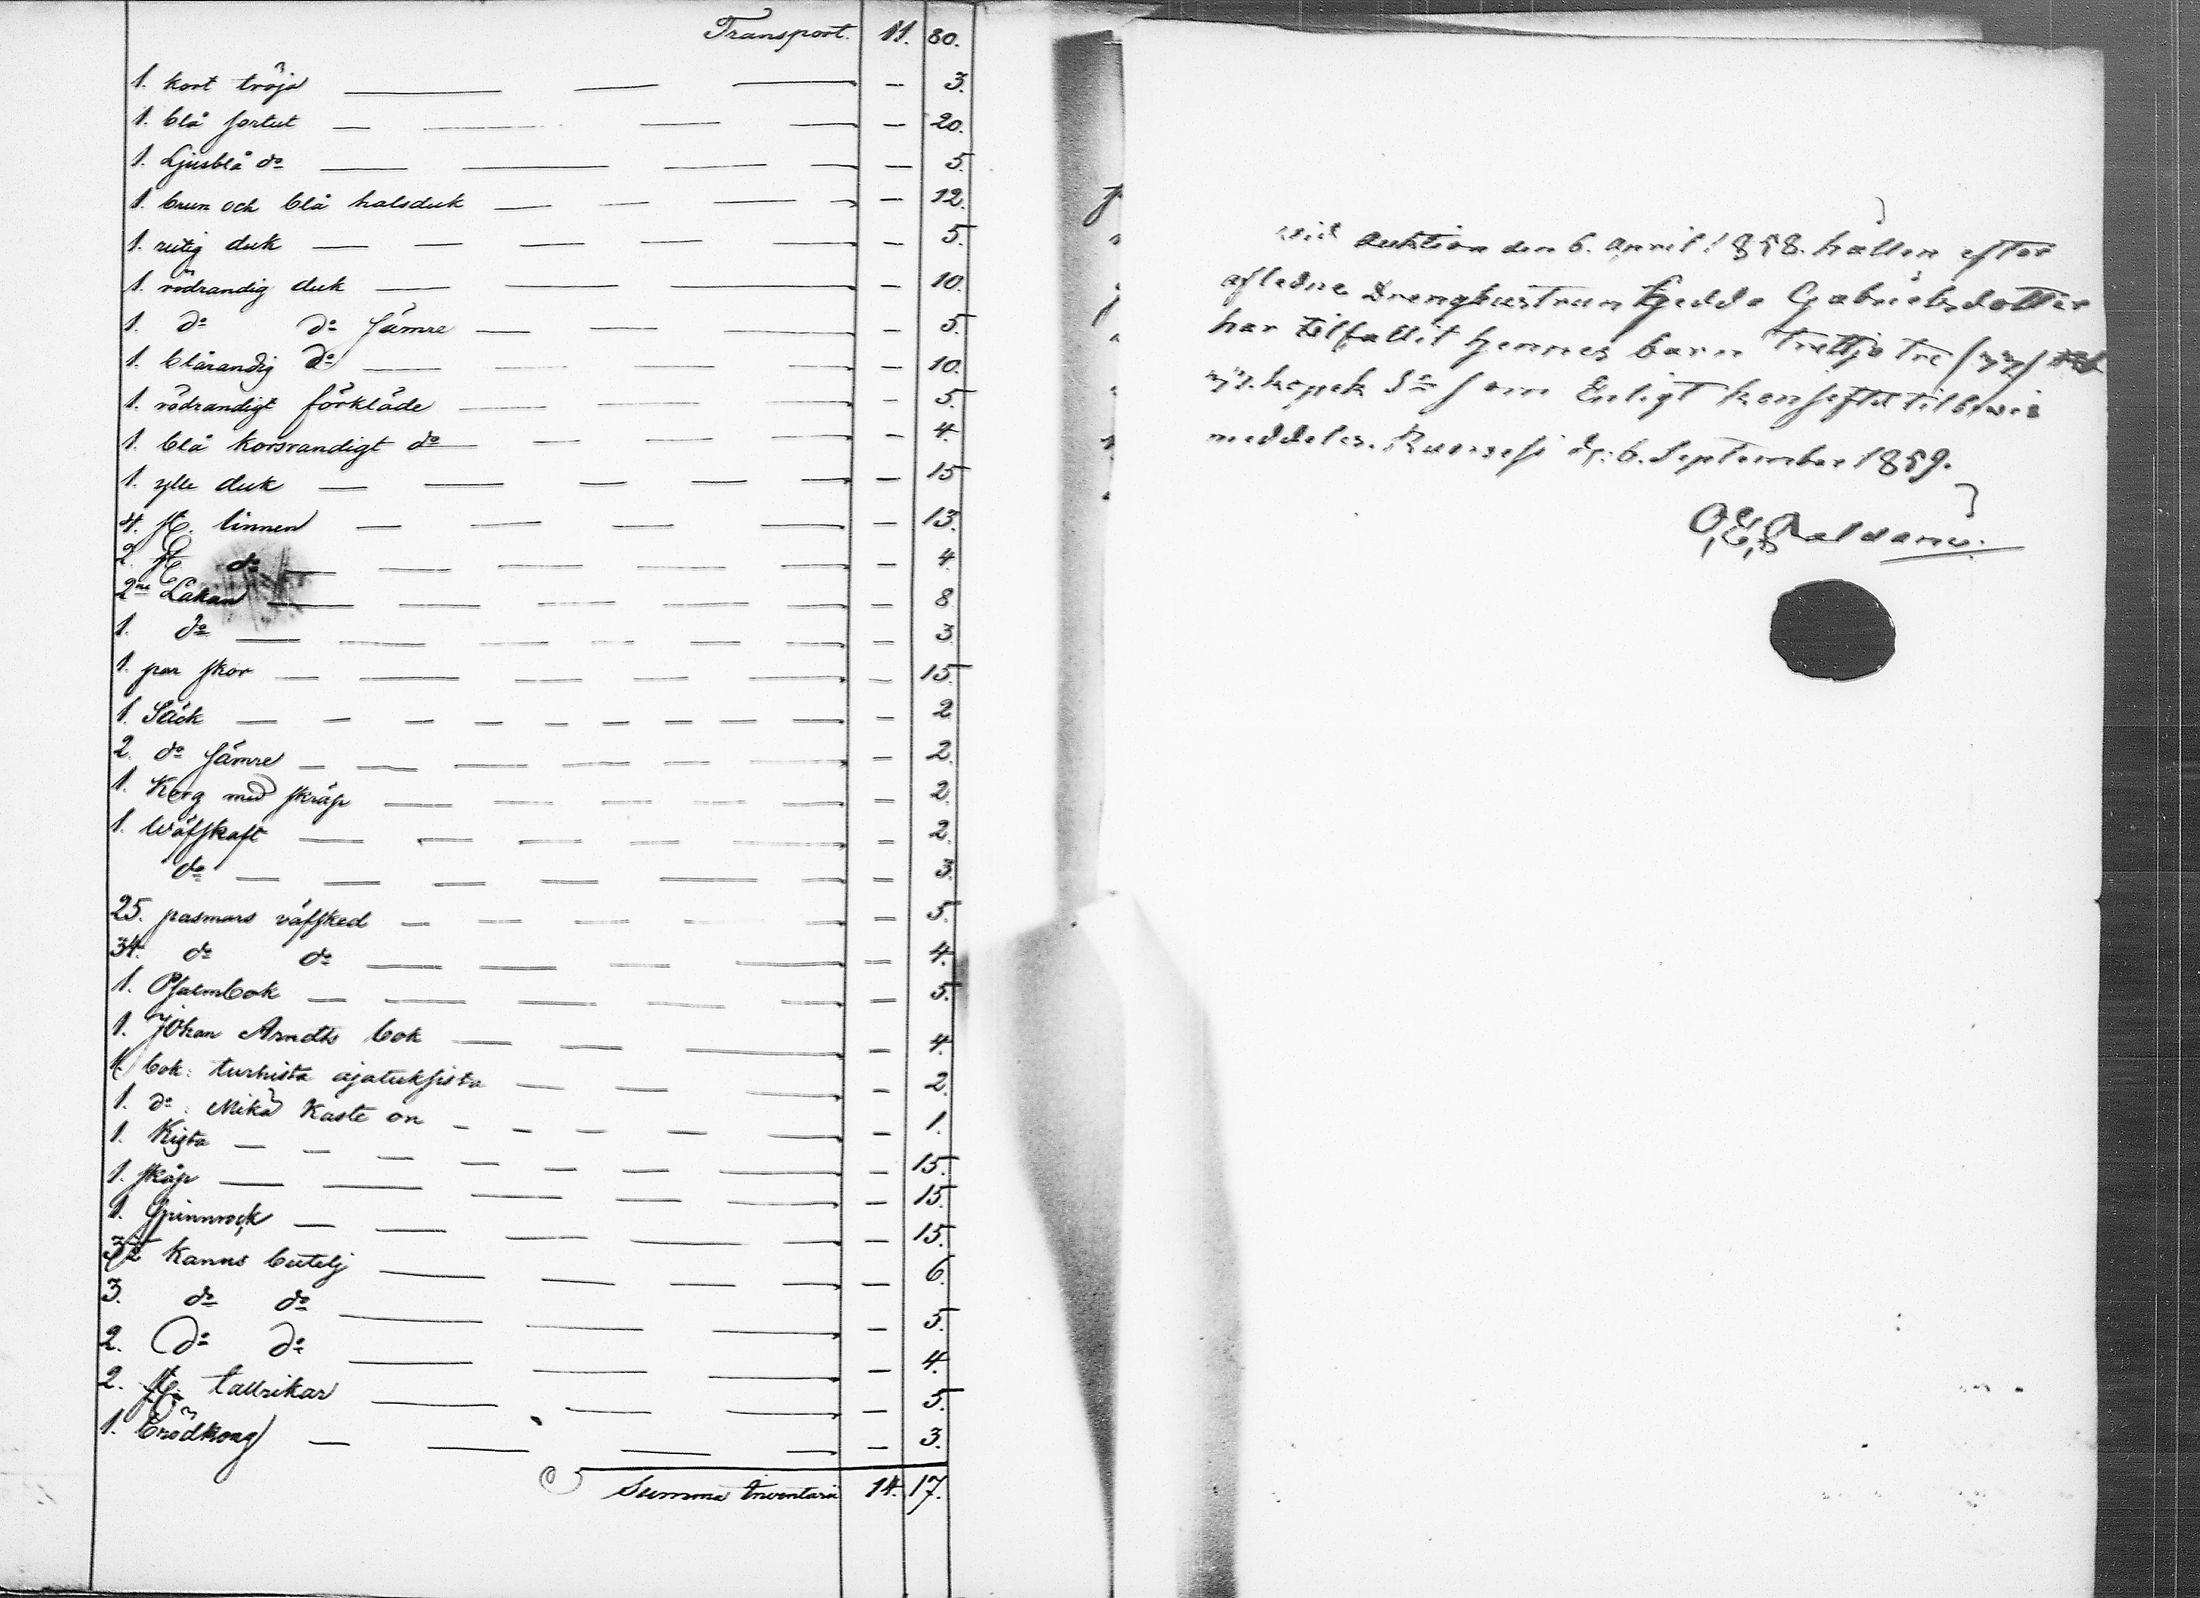 Transport. 11. 80.
1. kort tröja — 3.
1. blå sortut — 20.
1. Ljusblå do — 5.
1. brun och blå halsduk — 12.
1. rutig duk — 5.
1. rödrandig duk — 10.
1. do do sämre — 5.
1. blårandig do — 10.
1. rödrandigt förkläde — 5.
1. blå korsrandigt do — 4.
1. ylle duk — 15
4. st. linnen — 13.
2. st. do — 4.
2ne Lakan — 8.
1. do — 3.
1. par skor — 15.
1. Säck — 2.
2. do sämre — 2.
1. Korg med skräp — 2.
1. Wäfskaft — 2.
do — 3.
25. pasmars väfsked — 5.
34. do do — 4.
1. Psalmbok — 5.
1. Johan Arndts bok — 4.
1. bok: turhista ajatuksista — 2.
1. do: Mikä Kaste on — 1.
1. Kista — 15.
1. skåp — 15.
1. Spinnrock — 15.
3/2 kanns butelj — 6.
3. do do — 5.
2. do do — 4.
2. st. tallrikar — 5.
1. brödkorg — 3.
Summa Inventarii 14. 17.
vid auktion den 6. April 1858. hållen efter
afledne Drenghustrun Hedda Gabrielsdotter
har tilfallit hennes barn trettjo tre
kopek Sr som Enligt tilbevis
meddeles. d: 6. September 1859.
O. E.